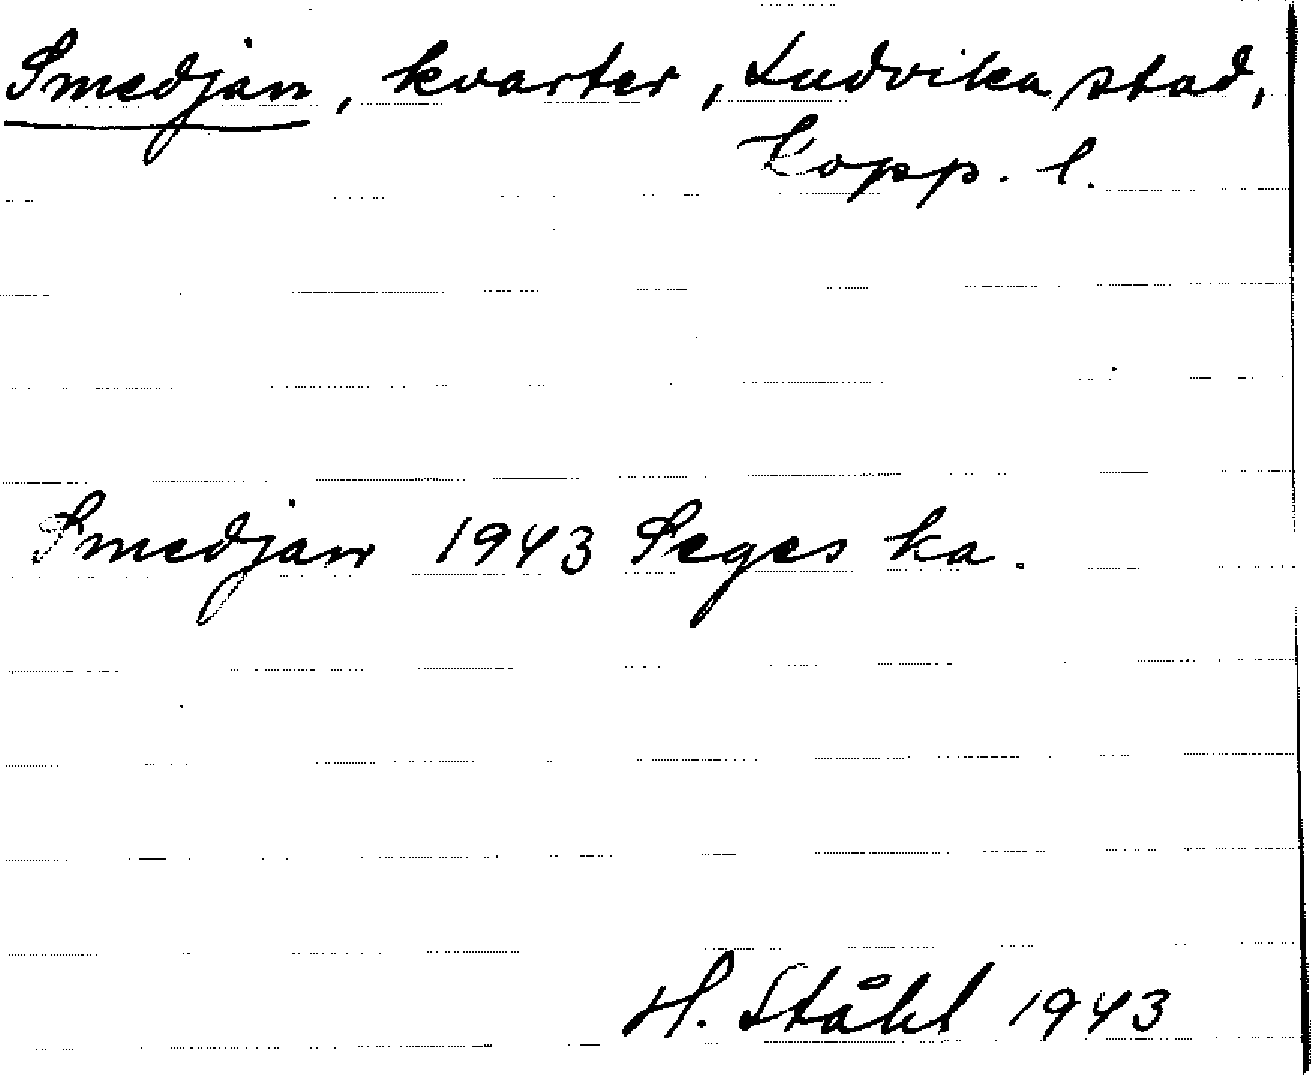 Smedjan, kvarter, Ludvika stad,
Kopp. l.
Smedjan 1943 Seges ka.
H. Ståhl 1943